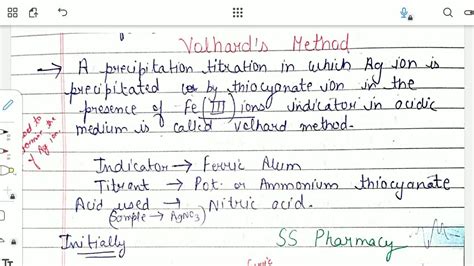 Volhard's Method
→ A precipitation titration in which Ag ion is
precipitated by thiocyanate ion in the
presence of Fe(III) ions indicator in acidic
medium is called volhard method.
used to
Ag ion.
Indicator → Ferric Alum
Titrant → Pot. or Ammonium thiocyanate
Acid used → Nitric acid.
(Sample → AgNO3)
Initially
SS Pharmacy